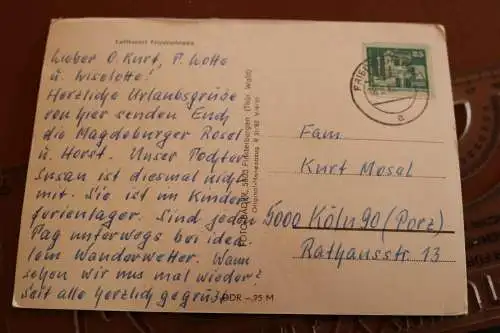 Luftkurort Friedrichroda
Lieber O. Kurt, T. Lotte
u. Liselotte!
Herzliche Urlaubsgrüße
von hier senden Euch
die Magdeburger Rosel
u. Horst. Unser Tochter
Susan ist diesmal nicht
mit. Sie ist im Kinder
ferienlager. Sind jeden
Tag unterwegs bei idea
lem Wanderwetter. Wann
sehen wir uns mal wieder?
Seid alle herzlich gegrüßt
DDR –,25 M
FRIED
Fam.
Kurt Mosal
5000 Köln 90 (Porz)
Rathausstr. 13